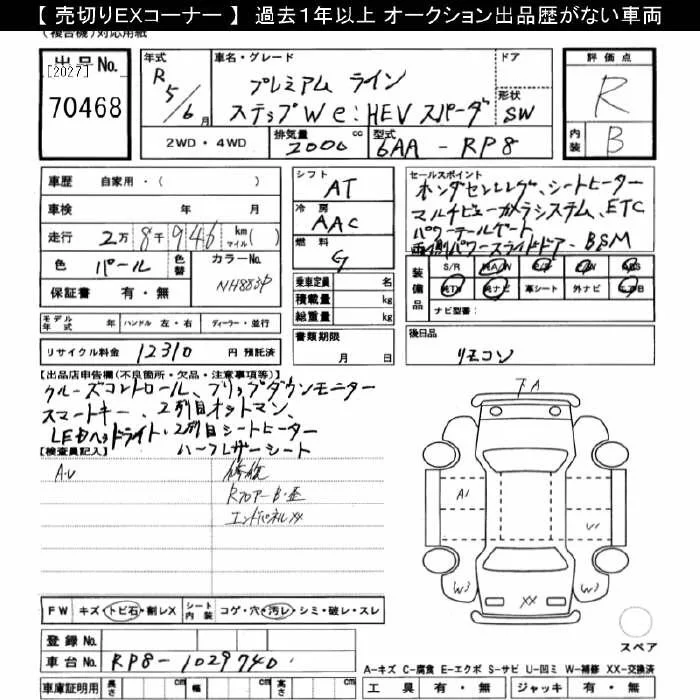 【 売切りEXコーナー 】 過去１年以上 オークション出品歴がない車両
(複合機)対応用紙
出品No.
[2027]
70468
年式
R5/6月
車名・グレード
プレミアム ライン
ステップW e:HEV スパーダ
ドア
形状
SW
評価点
R
内装
B
2WD・4WD
排気量
2000 cc
型式
6AA - RP8
車歴 自家用・( )
車検 年 月
走行 2万8千946 km マイル( )
色 パール
色替
カラーNo.
NH883P
保証書 有・無
シフト
AT
冷房
AAC
燃料
G
乗車定員 名
積載量 kg
総重量 kg
セールスポイント
ホンダセンシング、シートヒーター
マルチビューカメラシステム、ETC
パワーテールゲート
両側パワースライドドア・BSM
装備品
S/R A/W P/S P/W ABS
純TV 純ナビ 革シート 外ナビ エアB
ナビ型番:
モデル年式 年 ハンドル 左・右 ディーラー・並行
リサイクル料金 12310 円 預託済
書類期限
月 日
後日品
リモコン
【出品店申告欄(不良箇所・欠品・注意事項等)】
クルーズコントロール、フリップダウンモニター
スマートキー、2列目オットマン、
LEDヘッドライト・2列目シートヒーター
ハーフレザーシート
【検査員記入】
A・U
修復
Rフロアー B・歪
エンドパネルXX
FA
A1
U1
W3
XX
W3
スペア
FW キズ・トビ石・割レX
シート内装 コゲ・穴・汚レ・シミ・破レ・スレ
登録No.
車台No. RP8-1029740
A-キズ C-腐食 E-エクボ S-サビ U-凹ミ W-補修 XX-交換済
車庫証明用 長さ cm 幅 cm 高さ cm
工具 有・無 ジャッキ 有・無